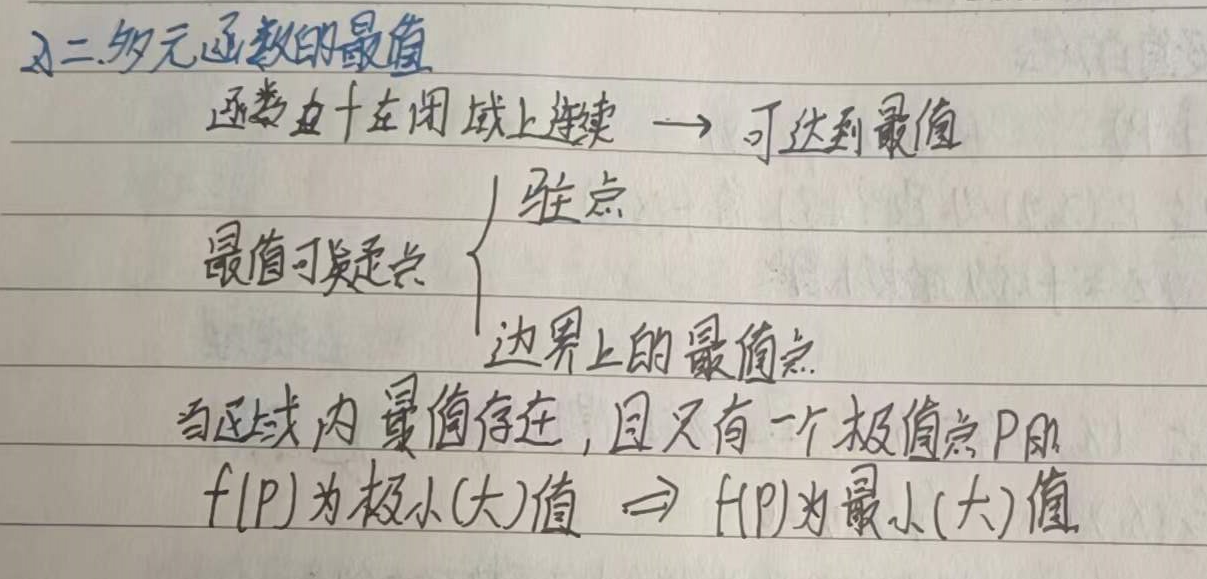 二.多元函数的最值
函数f在闭域上连续 → 可达到最值
最值可疑点 { 驻点
边界上的最值点
当区域内最值存在,且只有一个极值点P时
f(P)为极小(大)值 ⇒ f(P)为最小(大)值